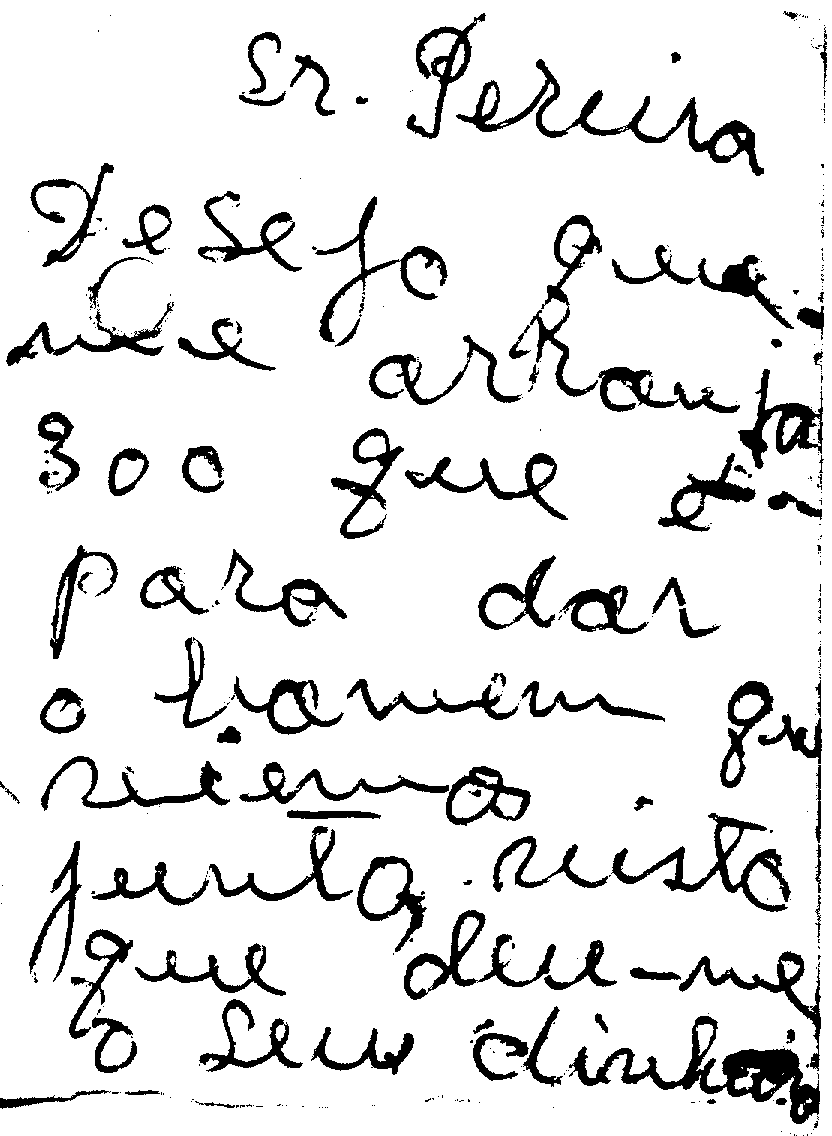 Sr. Pereira
Desejo que
me arranja
300 que é
para dar
o homem que
junto, visto
que deu-me
o seu dinheiro